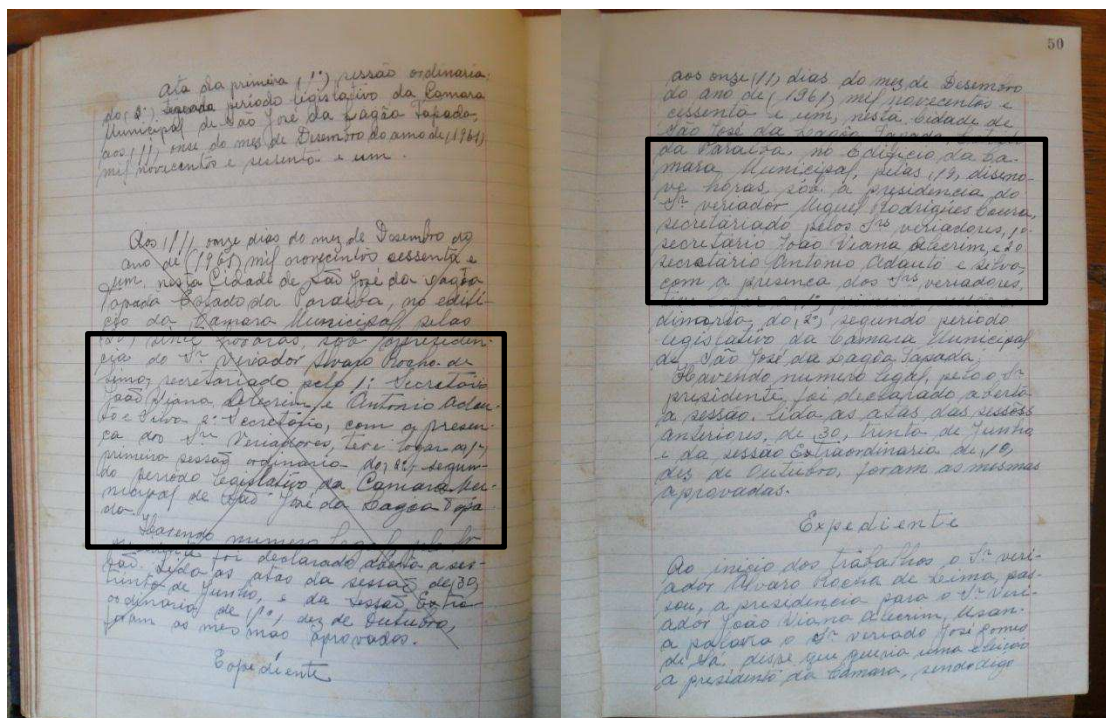 ata da primeira (1ª) sessão ordinaria
do (2º) periodo legislativo da Camara
Municipal de São José da Lagôa Tapada,
aos (11) onze do mez de Desembro do ano de (1961)
mil novecentos e sessenta e um.
Aos (11) onze dias do mez de Desembro do
ano de (1961) mil novecentos sessenta e
um, nesta Cidade de São José da Lagôa
Tapada Estado da Paraiba, no edifi-
cio da Camara Municipal pelas
horas, sob a presiden-
cia do Sr. Veriador Alvaro Rocha de
Lima, secretariado pelo 1º Secretário
João Viana Alecrim, e Antonio Adau-
to e Silva 2º Secretário, com a presen-
ça dos Srs. Veriadores, teve logar a (1ª)
primeira sessão ordinaria do (2º) segun-
do periodo legislativo da Camara Mu-
nicipal de São José da Lagoa Tapa-
da.
Havendo numero legal, pelo Sr.
foi declarado aberta a ses-
são. Lida as atas da sessão de (30)
trinta de Junho, e da sessão Extra-
ordinaria de (10) dez de Outubro,
foram as mesmas aprovados.
Expediente
50
aos onze (11) dias do mez de Desembro
do ano de (1961) mil novecentos e
cessenta e um, nesta Cidade de
São José da Lagôa Tapada, Estado
da Paraiba, no Edificio da Ca-
mara Municipal, pelas (19) diseno-
ve horas, sob a presidencia do
Sr. veriador Miguel Rodrigues Coura,
secretariado pelos Srs veriadores, 1º
secretário João Viana Alecrim, e 2º
secretário Antonio Adauto e Silva,
com a presença dos Srs. veriadores,
dinaria, do (2º) segundo periodo
legislativo da Câmara Municipal
de São José da Lagôa Tapada.
Havendo numero legal, pelo o Sr.
presidente, foi declarado aberta
a sessão. lida as atas das sessões
anteriores, de (30) trinta de Junho
e da sessão Extraordinaria de (10)
dez de Outubro, foram as mesmas
aprovadas.
Expediente
Ao inicio dos trabalhos o Sr. veri-
ador Alvaro Rocha de Leima, pas-
sou, a presidencia para o Sr. Veri-
ador João Viana Alecrim, Usan-
a palavra o Sr. veriado José Gomes
de Sá, disse que queria uma eleição
a presidente da Câmara, sendo digo